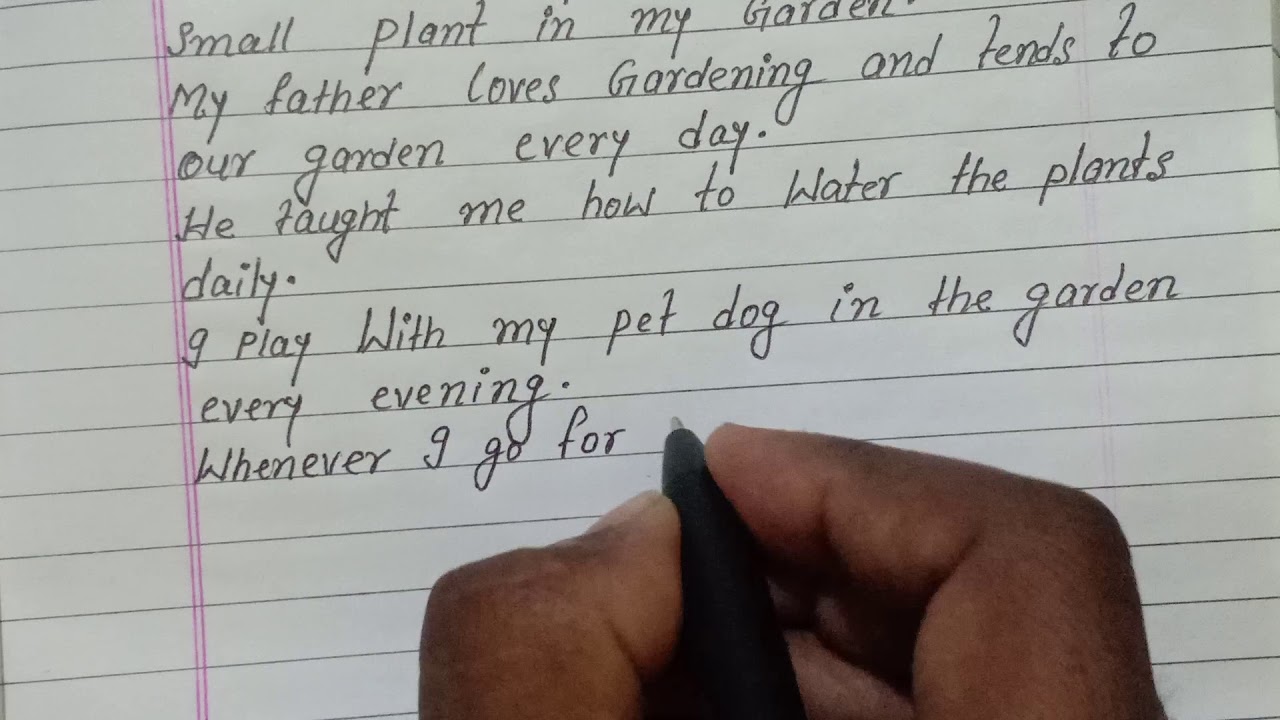 Small plant in my Garden.
My father loves Gardening and tends to
our garden every day.
He taught me how to Water the plants
daily.
I play With my pet dog in the garden
every evening.
Whenever I go for